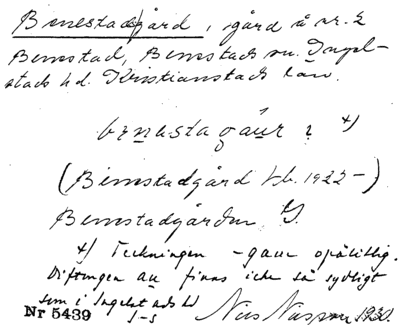 Benestadsgård, gård å nr. 2
Benestad, Benestads sn. Ingel-
stads hd. Kristianstads län.
benestagáur ? x)
(Benestadgård kb. 1922 -)
Benestadgården, G.
x) Teckningen -gaur opålitlig.
Diftongen au finns icke så sydligt
som i Ingelstads hd
Nr 5439 J-s Nils Nilsson 1930.